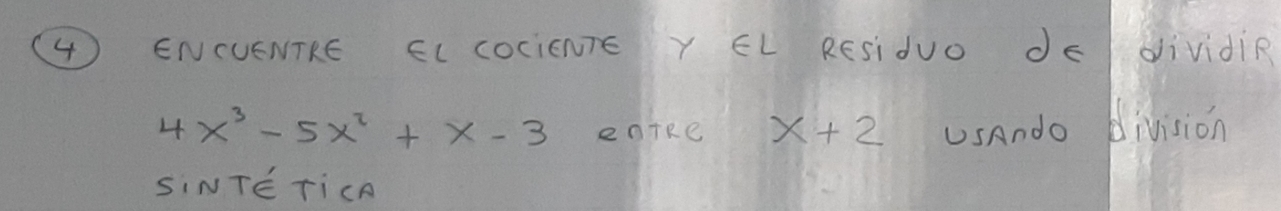 4 ENCUENTRE EL COCIENTE Y EL RESIDUO de dividiR
4x³ - 5x² + x - 3 entRe x + 2 USANdO división
SiNTÉTiCA